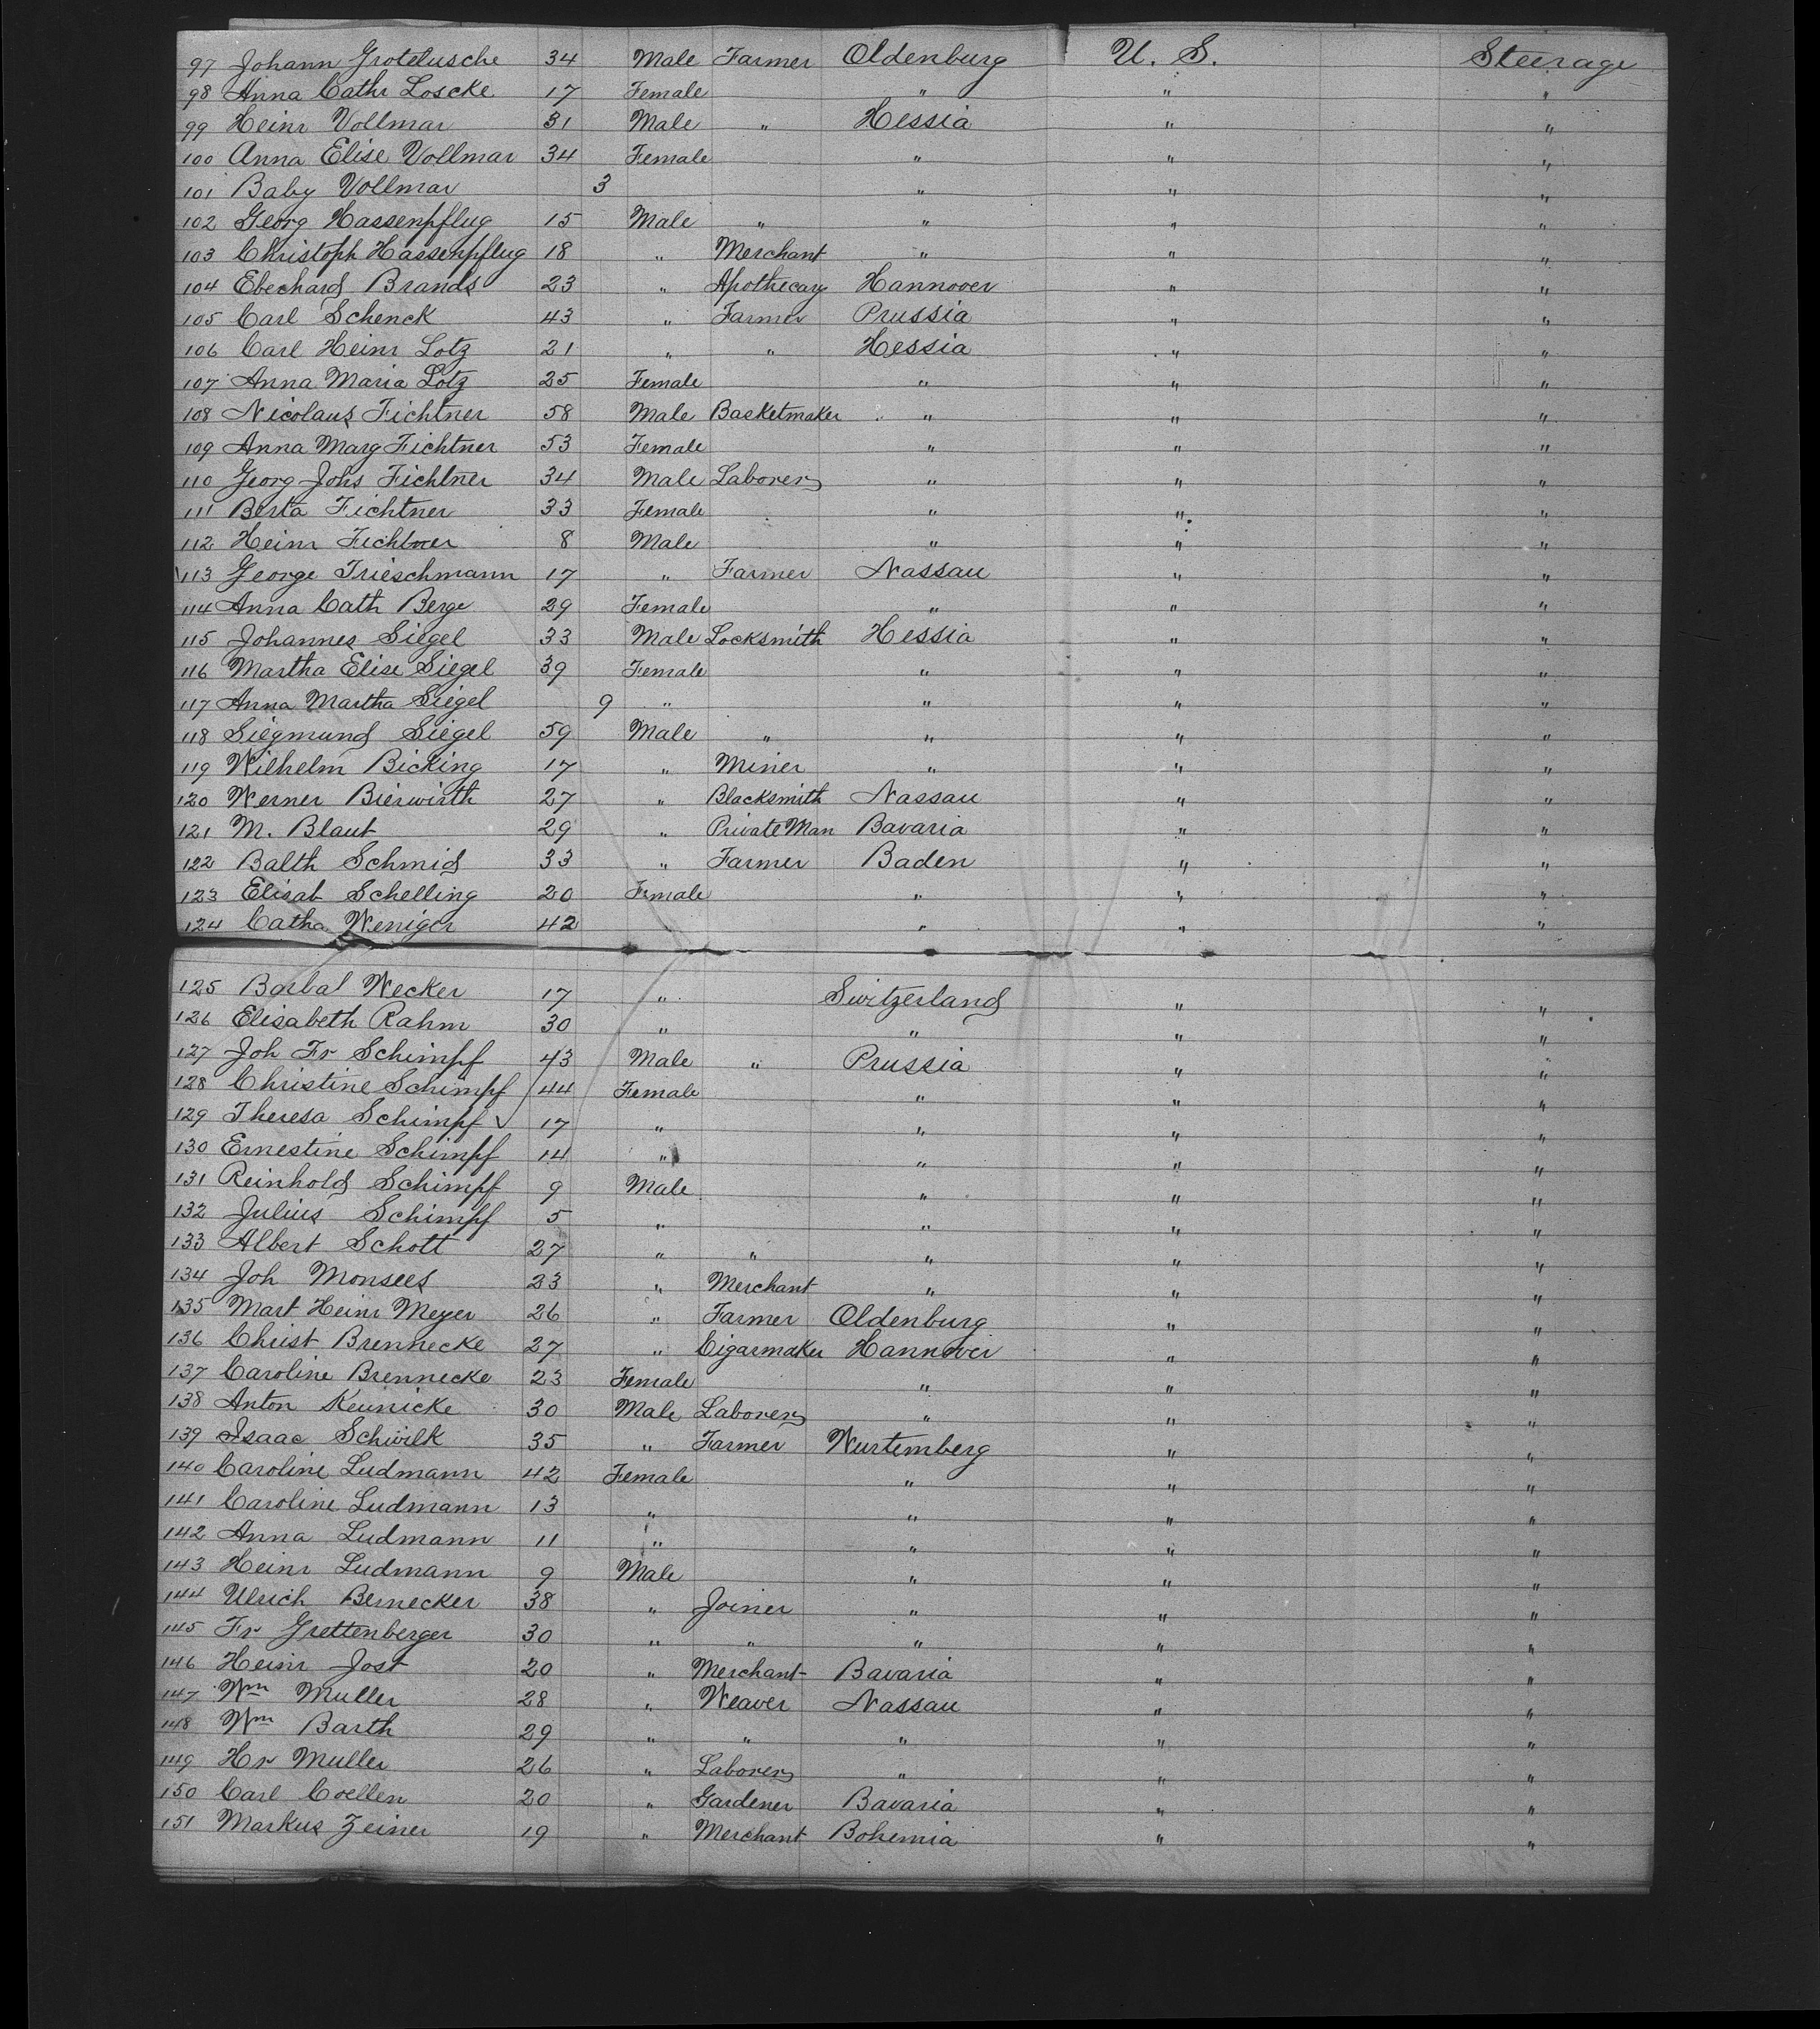 97 Johann Grotelusche 34 Male Farmer Oldenburg U. S. Steerage
98 Anna Cathr Loscke 17 Female " " "
99 Heinr Vollmar 31 Male " Hessia " "
100 Anna Elise Vollmar 34 Female " " "
101 Baby Vollmar 3 " " "
102 Georg Hassenpflug 15 Male " " " "
103 Christoph Hassenpflug 18 " Merchant " " "
104 Ebechard Brands 23 " Apothecary Hannover " "
105 Carl Schenck 43 " Farmer Prussia " "
106 Carl Heinr Lotz 21 " " Hessia " "
107 Anna Maria Lotz 25 Female " " "
108 Nicolaus Fichtner 58 Male Basketmaker " " "
109 Anna Marg Fichtner 53 Female " " "
110 Georg Johs Fichtner 34 Male Laborer " " "
111 Berta Fichtner 33 Female " " "
112 Heinr Fichtner 8 Male " " "
113 George Trieschmann 17 " Farmer Nassau " "
114 Anna Cath Berge 29 Female " " "
115 Johannes Siegel 33 Male Locksmith Hessia " "
116 Martha Elise Siegel 39 Female " " "
117 Anna Martha Siegel 9 " " " "
118 Siegmund Siegel 59 Male " " " "
119 Wilhelm Bicking 17 " Miner " " "
120 Werner Bierwirth 27 " Blacksmith Nassau " "
121 M. Blaut 29 " Private Man Bavaria " "
122 Balth Schmid 33 " Farmer Baden " "
123 Elisab Schelling 20 Female " " "
124 Catha Weniger 42 " " " "
125 Barbal Wecker 17 " Switzerland " "
126 Elisabeth Rahm 30 " " " "
127 Joh Fr Schimpf 43 Male " Prussia " "
128 Christine Schimpf 44 Female " " "
129 Theresa Schimpf 17 " " " "
130 Ernestine Schimpf 14 " " " "
131 Reinhold Schimpf 9 Male " " "
132 Julius Schimpf 5 " " " "
133 Albert Schott 27 " " " " "
134 Joh Monsees 23 " Merchant " " "
135 Mart Heinr Meyer 26 " Farmer Oldenburg " "
136 Christ Brennecke 27 " Cigarmaker Hannover " "
137 Caroline Brennecke 23 Female " " "
138 Anton Keunicke 30 Male Laborer " " "
139 Isaac Schwilk 35 " Farmer Wurtemberg " "
140 Caroline Ludmann 42 Female " " "
141 Caroline Ludmann 13 " " " "
142 Anna Ludmann 11 " " " "
143 Heinr Ludmann 9 Male " " "
144 Ulrich Bernecker 38 " Joiner " " "
145 Fr Grettenberger 30 " " " " "
146 Heinr Jost 20 " Merchant Bavaria " "
147 Wm Muller 28 " Weaver Nassau " "
148 Wm Barth 29 " " " " "
149 Hr Muller 26 " Laborer " " "
150 Carl Coellen 20 " Gardener Bavaria " "
151 Markus Zeiner 19 " Merchant Bohemia " "